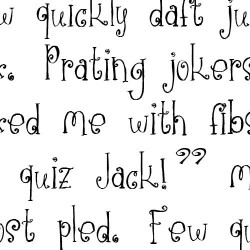 w quickly daft ju
x. Prating jokers
xed me with fibs
quiz Jack!” m
ost pled. Few qu